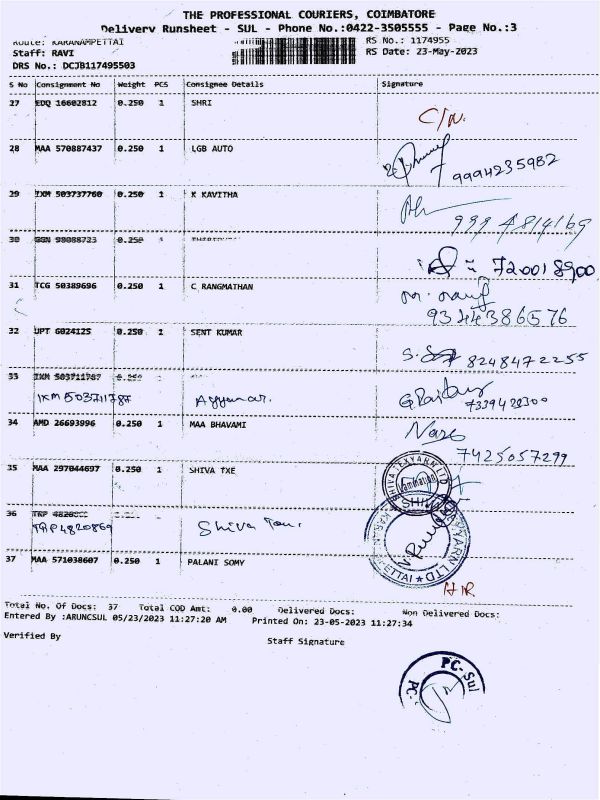 THE PROFESSIONAL COURIERS, COIMBATORE
Delivery Runsheet - SUL - Phone No.:0422-3505555 - Page No.:3
Route: KARANAMPETTAI RS No.: 1174955
Staff: RAVI RS Date: 23-May-2023
DRS No.: DCJB117495503
S No Consignment No Weight PCS Consignee Details Signature
27 EDQ 16602812 0.250 1 SHRI
28 MAA 570887437 0.250 1 LGB AUTO
9994235982
29 IXM 503737760 0.250 1 K KAVITHA
30 GGN 98088723 0.250 1
720018900
31 TCG 50389696 0.250 1 C RANGMATHAN
9344386576
32 UPT 6024125 0.250 1 SENT KUMAR
8248472255
33 IXM 503711787 0.250
IXM 503711787 Ayyanar.
34 AMD 26693996 0.250 1 MAA BHAVAMI
7425057299
35 MAA 297044697 0.250 1 SHIVA TXE
36 TRP
TRP4820869 Shiva
37 MAA 571038607 0.250 1 PALANI SOMY
Total No. Of Docs: 37 Total COD Amt: 0.00 Delivered Docs: Non Delivered Docs:
Entered By :ARUNCSUL 05/23/2023 11:27:20 AM Printed On: 23-05-2023 11:27:34
Verified By Staff Signature
PC- PC-Sul